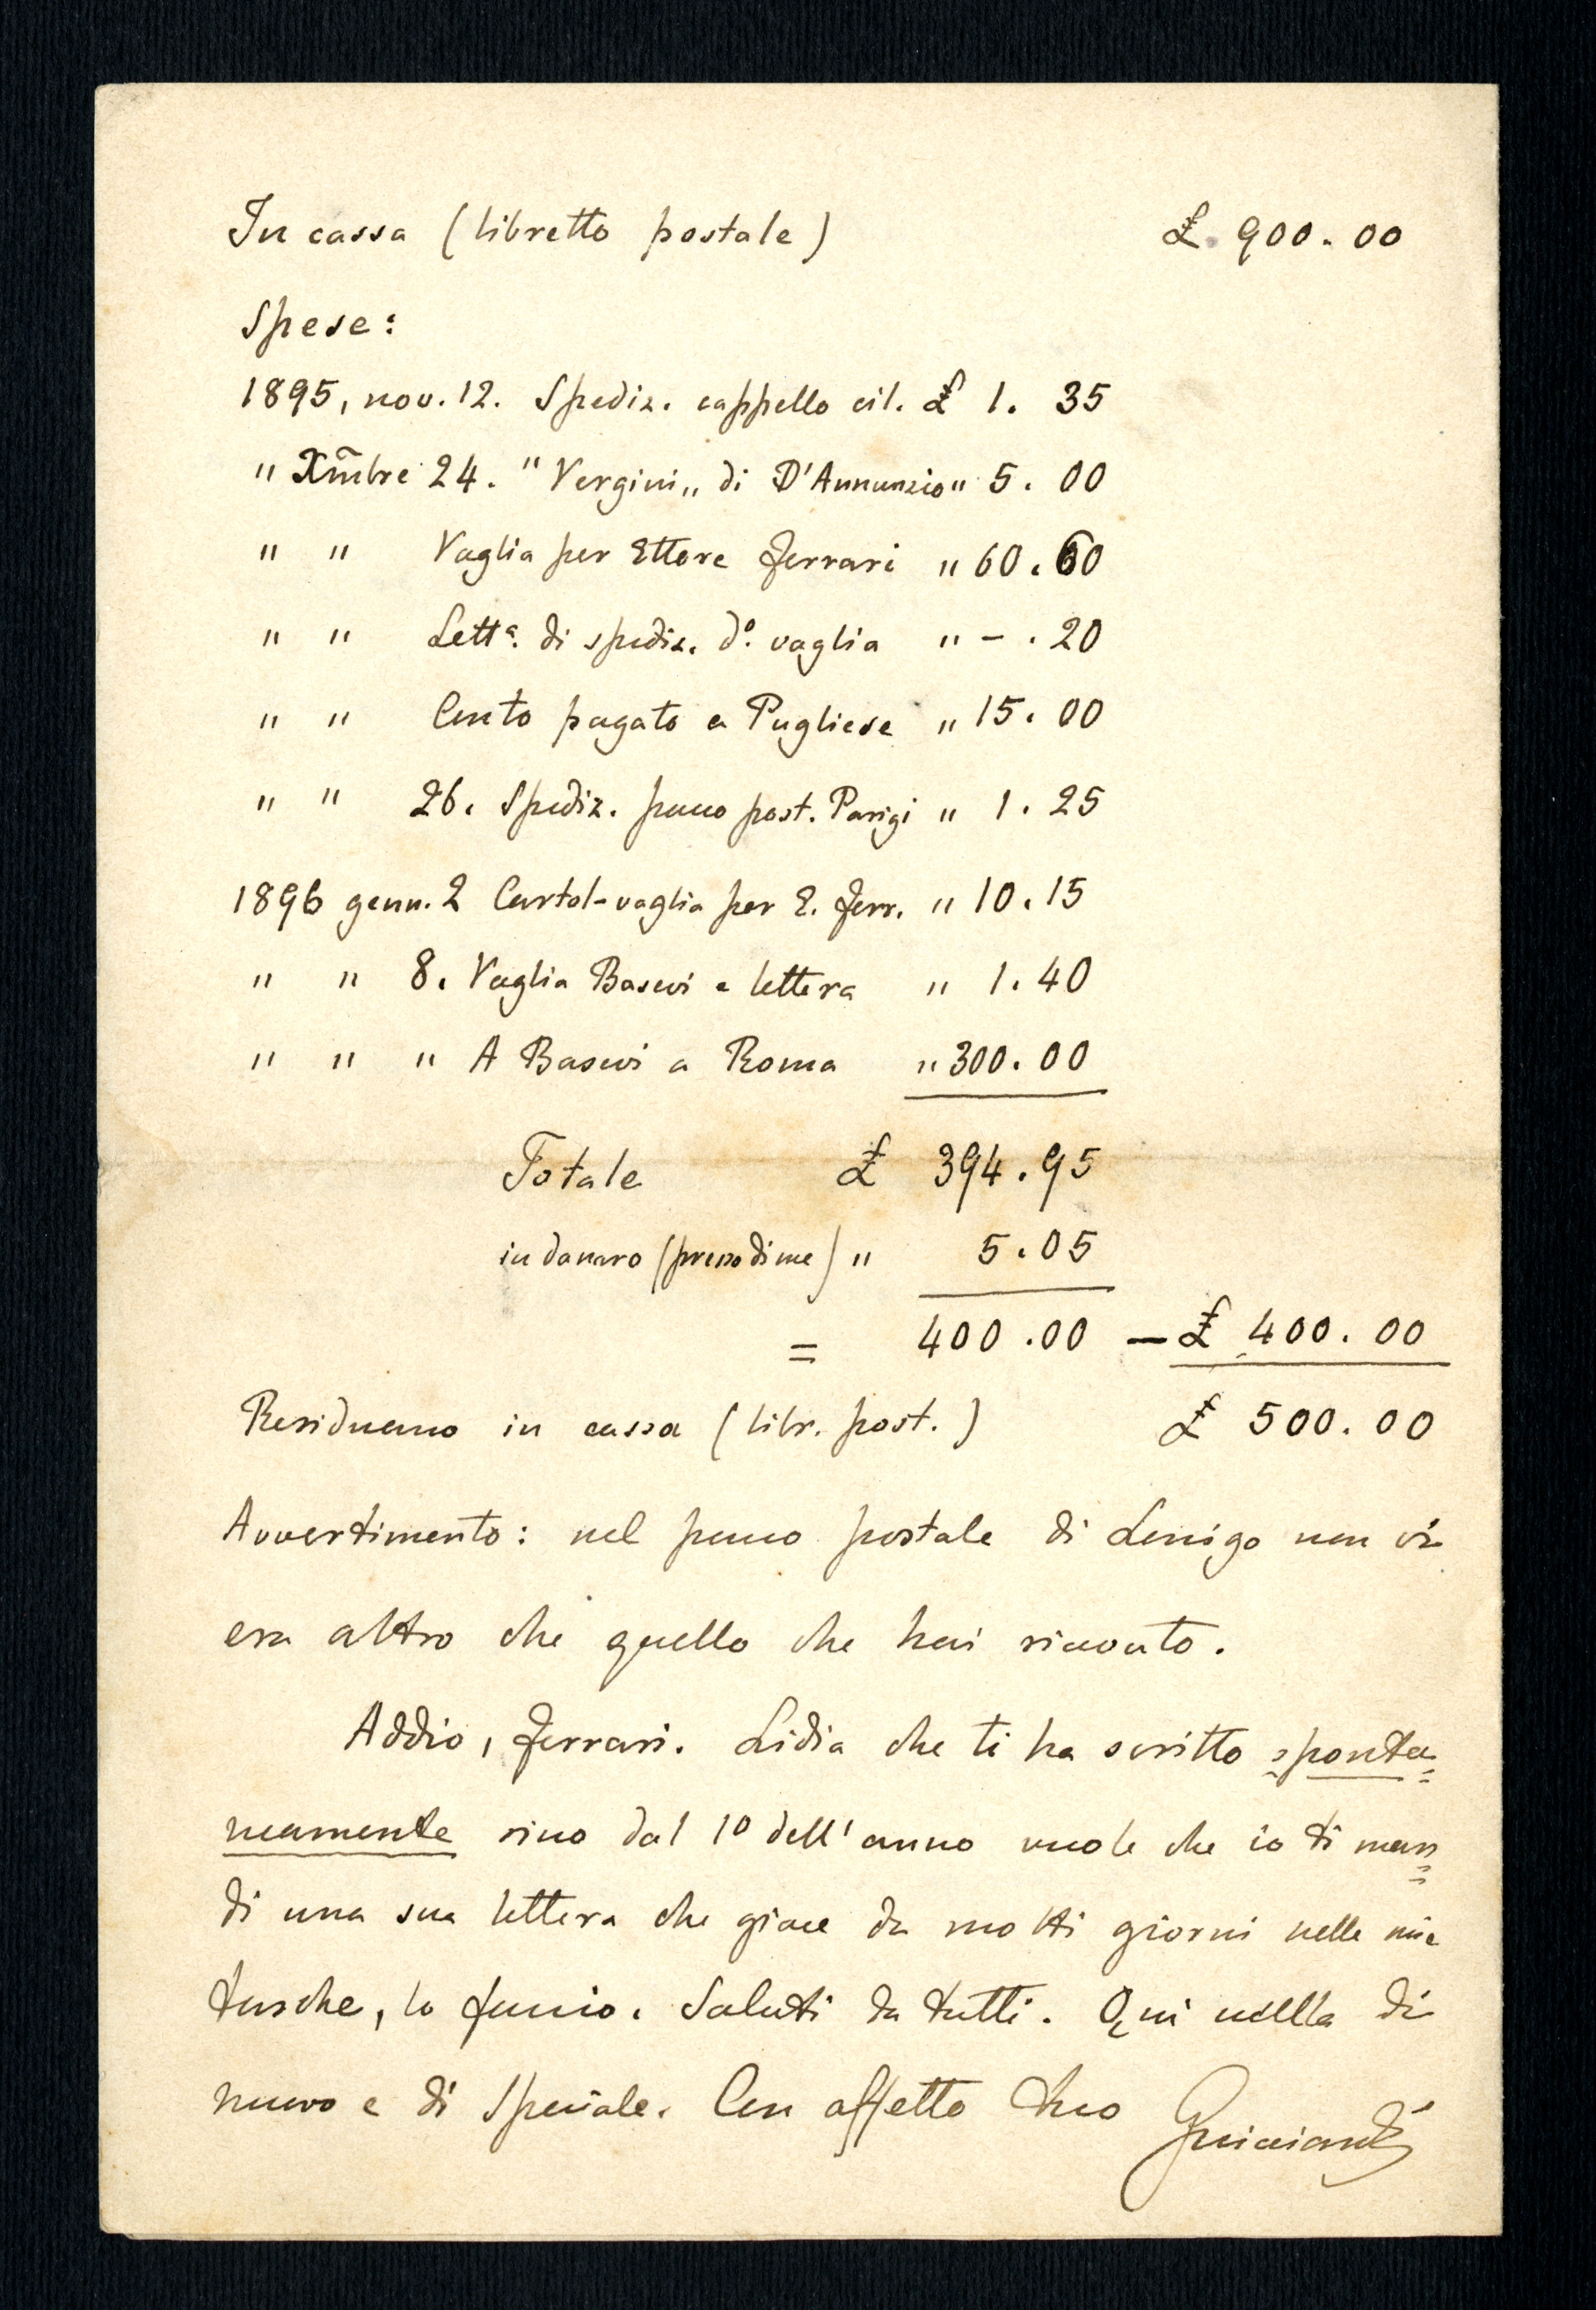 In cassa (libretto postale) £. 900.00
Spese:
1895, nov. 12. Spediz. cappello cil. £ 1. 35
" Xm̃bre 24. "Vergini„ di D'Annunzio " 5. 00
" " Vaglia per Ettore Ferrari " 60. 60
" " Lettª. di spediz. dº. vaglia " – . 20
" " Conto pagato a Pugliese " 15. 00
" " 26. Spediz. pacco post. Parigi " 1. 25
1896 genn. 2 Cartol-vaglia per E. Ferr. " 10. 15
" " 8. Vaglia Basevi e lettera " 1. 40
" " " A Basevi a Roma " 300. 00
Totale £ 394. 95
in danaro (presso di me) " 5. 05
= 400. 00 – £ 400. 00
Residuano in cassa (libr. post.) £ 500. 00
Avvertimento: nel pacco postale di Lonigo non vi
era altro che quello che hai ricevuto.
Addio, Ferrari. Lidia che ti ha scritto sponta=
neamente sino dal 1º dell'anno vuole che io ti man=
di una sua lettera che giace da molti giorni nelle mie
tasche, lo faccio. Saluti da tutti. Qui nulla di
nuovo e di speciale. Con affetto tuo